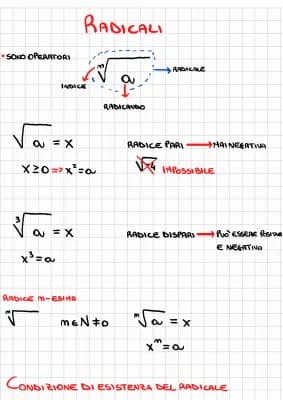 RADICALI
• SONO OPERATORI
ᵐ√a → RADICALE
INDICE
RADICANDO
√a = x RADICE PARI → MAI NEGATIVA
x ≥ 0 => x² = a √-4 IMPOSSIBILE
³√a = x RADICE DISPARI → PUO' ESSERE POSITIVA
x³ = a E NEGATIVA
RADICE M-ESIMA
ᵐ√ m∈N ≠ 0 ᵐ√a = x
xᵐ = a
CONDIZIONE DI ESISTENZA DEL RADICALE